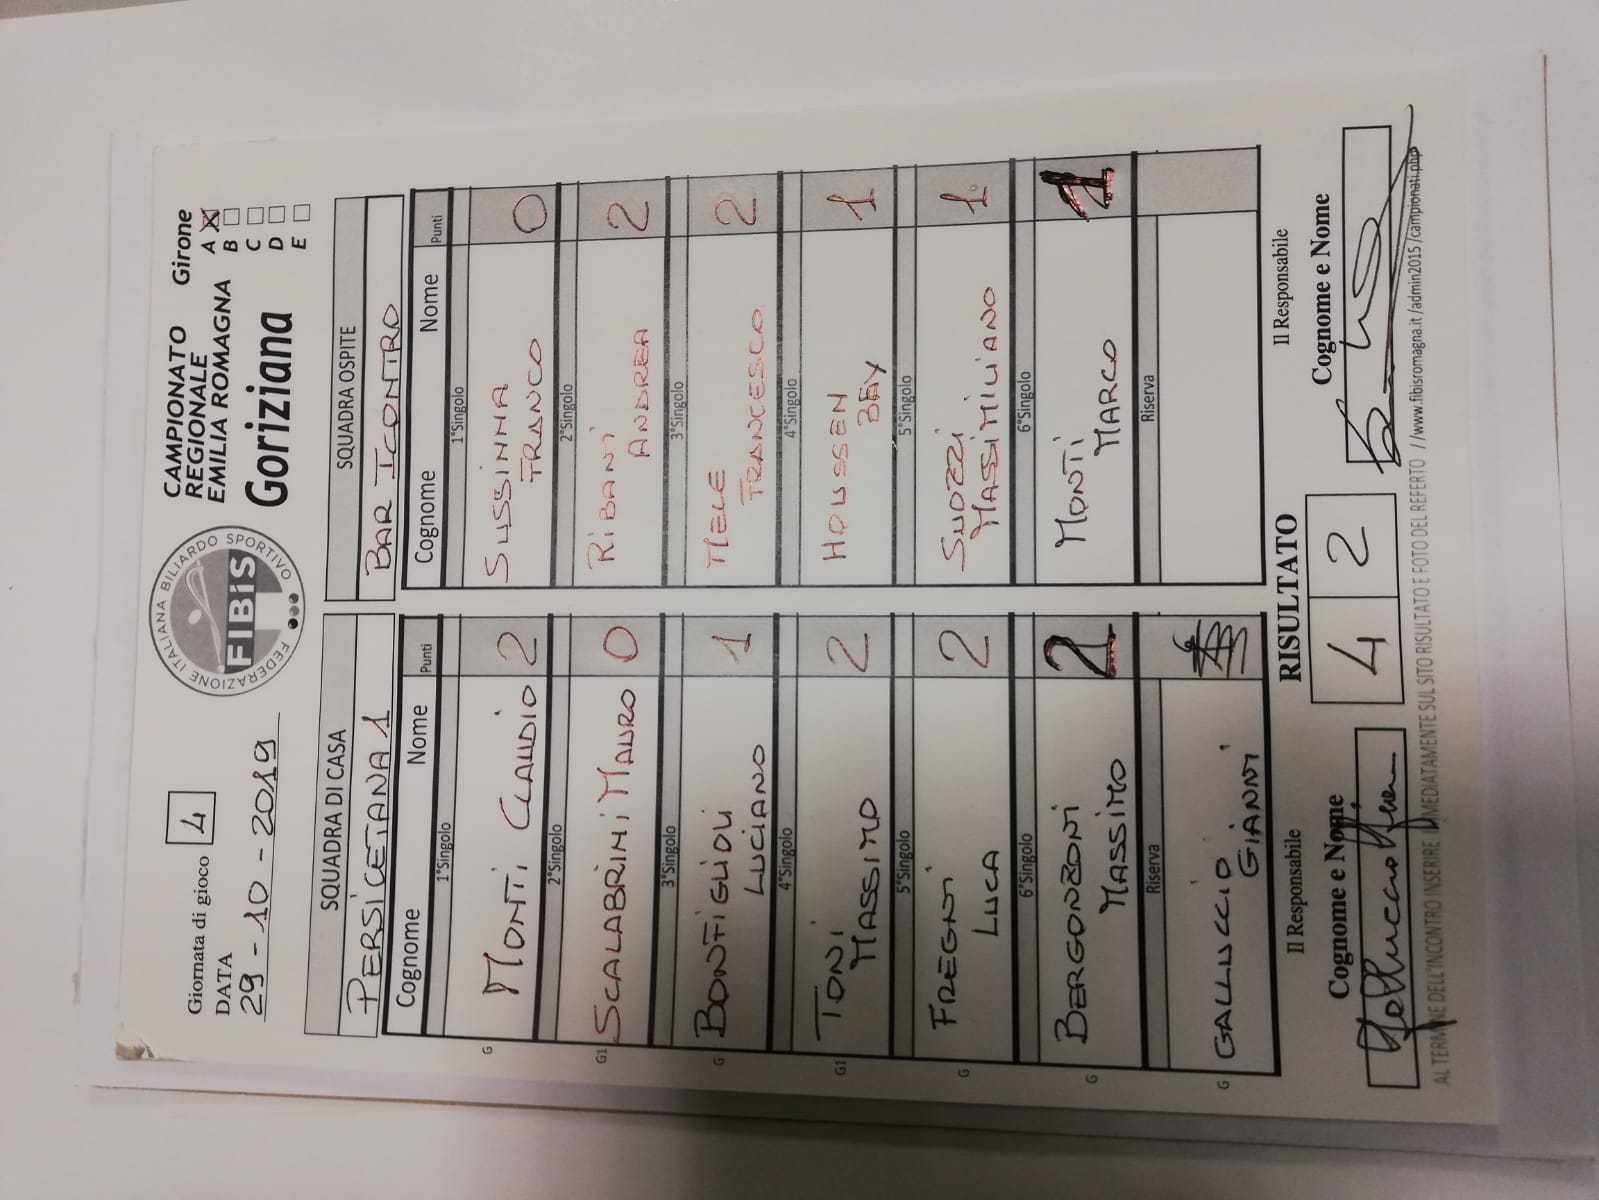 Giornata di gioco 4
DATA
29-10-2019
FEDERAZIONE ITALIANA BILIARDO SPORTIVO
FIBiS
CAMPIONATO
REGIONALE
EMILIA ROMAGNA
Goriziana
Girone
A X
B
C
D
E
SQUADRA DI CASA
PERSICETANA 1
Cognome Nome Punti
1°Singolo
G MONTI CLAUDIO 2
2°Singolo
G1 SCALABRINI MAURO 0
3°Singolo
G BONFIGLIOLI
LUCIANO 1
4°Singolo
G1 TONI
MASSIMO 2
5°Singolo
G FREGNI
LUCA 2
6°Singolo
G BERGONZONI
MASSIMO 2
Riserva
G GALLUCCIO
GIANNI
SQUADRA OSPITE
BAR ICONTRO
Cognome Nome Punti
1°Singolo
SUSSINNA
FRANCO 0
2°Singolo
RIBANI
ANDREA 2
3°Singolo
MELE
FRANCESCO 2
4°Singolo
HOUSSEN
BEY 1
5°Singolo
SUOZZI
MASSIMILIANO 1
6°Singolo
MONTI
MARCO 1
Riserva
Il Responsabile
Cognome e Nome
RISULTATO
4 2
Il Responsabile
Cognome e Nome
AL TERMINE DELL'INCONTRO INSERIRE IMMEDIATAMENTE SUL SITO RISULTATO E FOTO DEL REFERTO //www.fibisromagna.it/admin2015/campionati.php